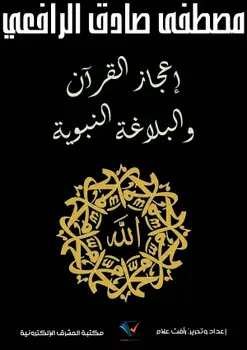 مصطفى صادق الرافعي
إعجاز القرآن
والبلاغة النبوية
الله
إعداد وتحرير: رأفت علام
مكتبة المشرق الإلكترونية